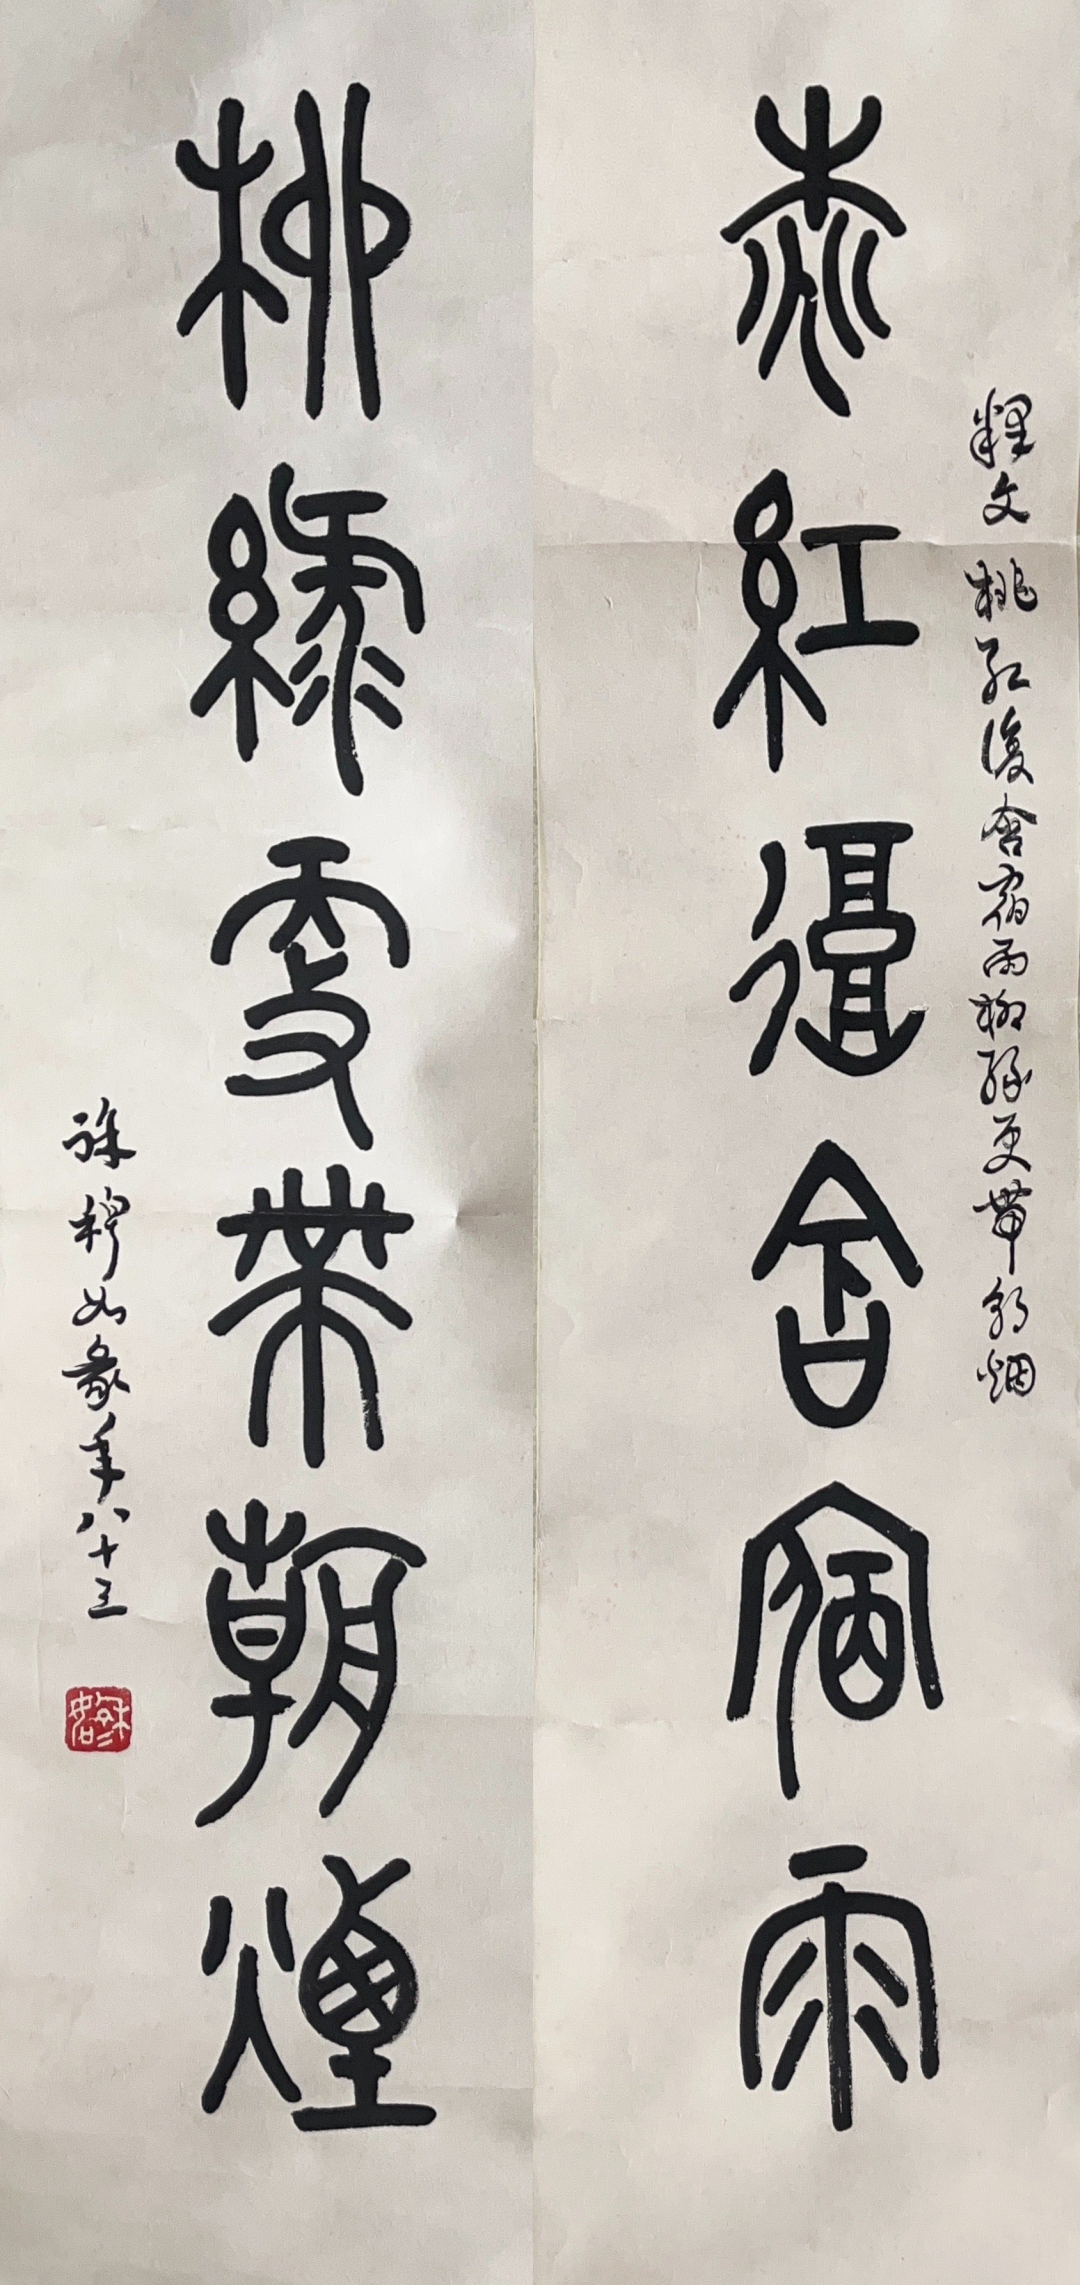 釋文 桃紅復含宿雨柳綠更帶朝烟
桃紅復含宿雨
柳綠更帶朝煙
徐穆如篆年八十三